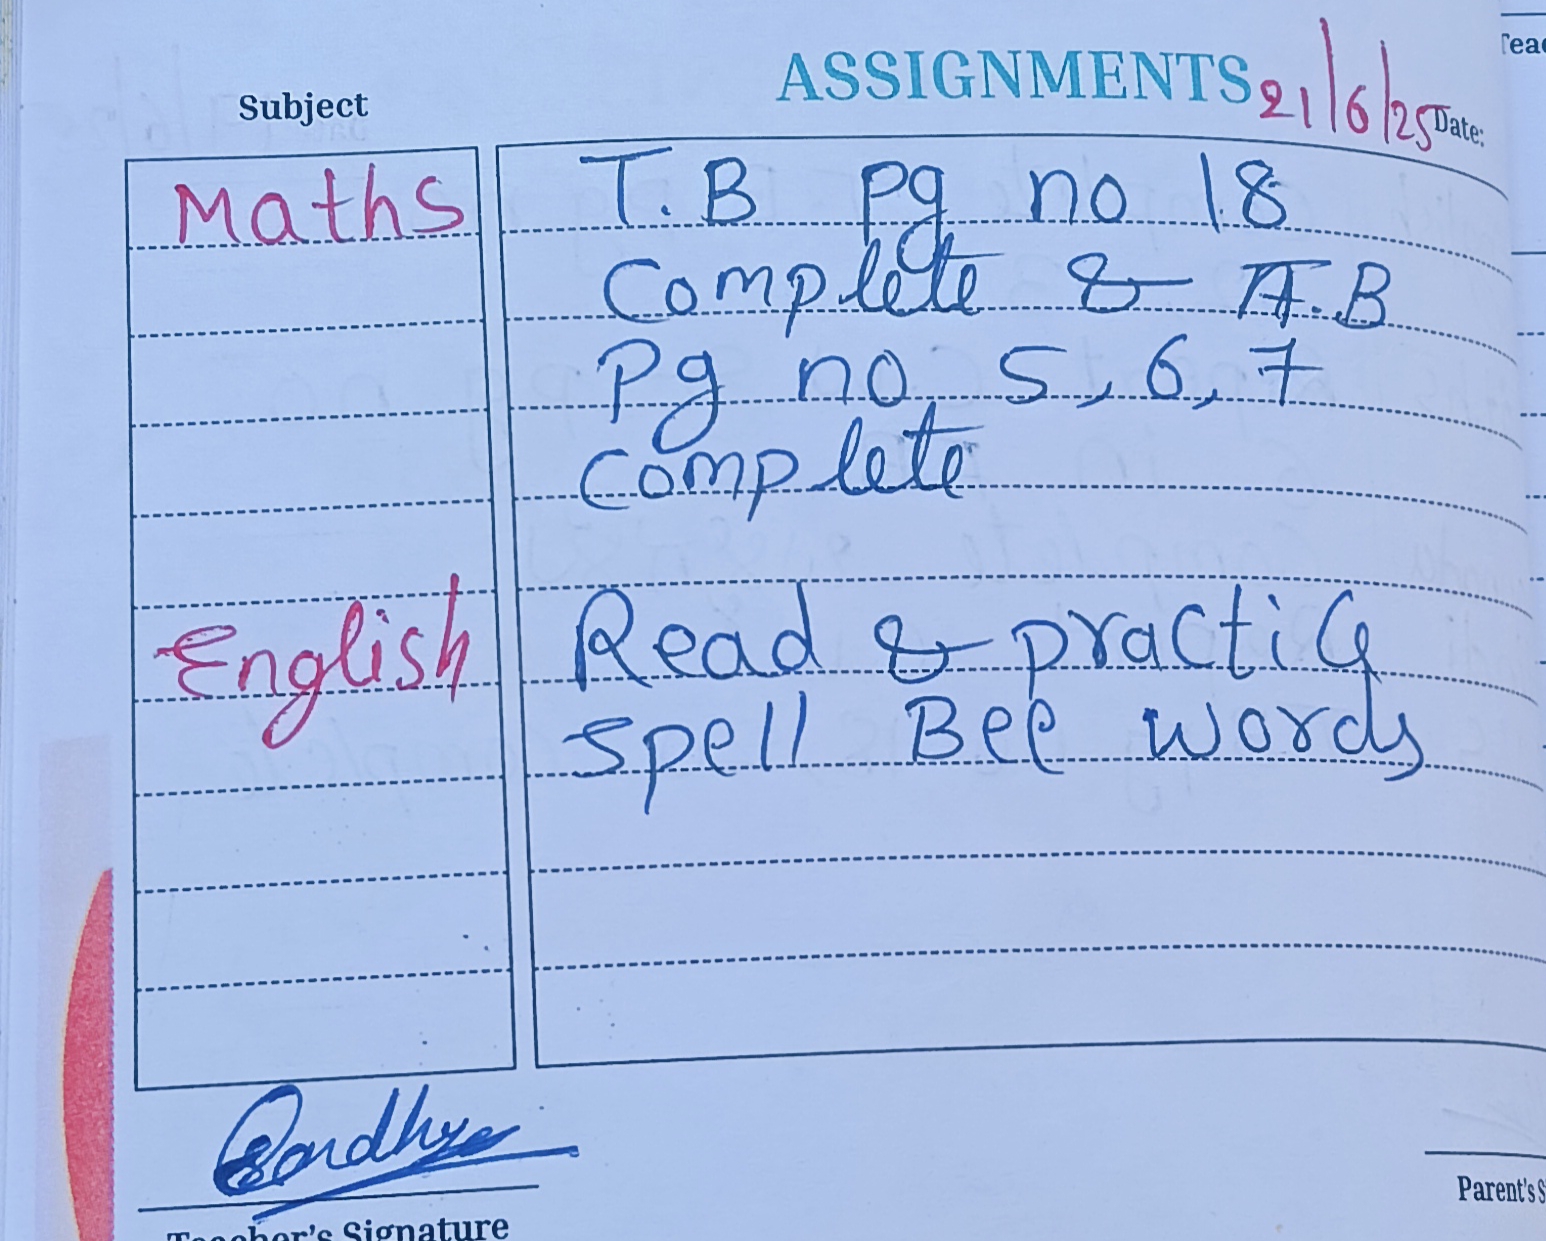 ASSIGNMENTS 21/6/25 Date:
Subject
Maths T.B pg no 18
Complete & A.B
Pg no 5, 6, 7
Complete
English Read & practice
spell Bee words
Teacher's Signature
Parent's S